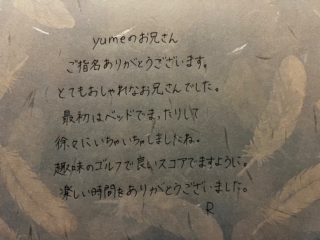 yumeのお兄さん
ご指名ありがとうございます。
とてもおしゃれなお兄さんでした。
最初はベッドでまったりして
徐々にいちゃいちゃしましたね。
趣味のゴルフで良いスコアでますように。
楽しい時間をありがとうございました。
R